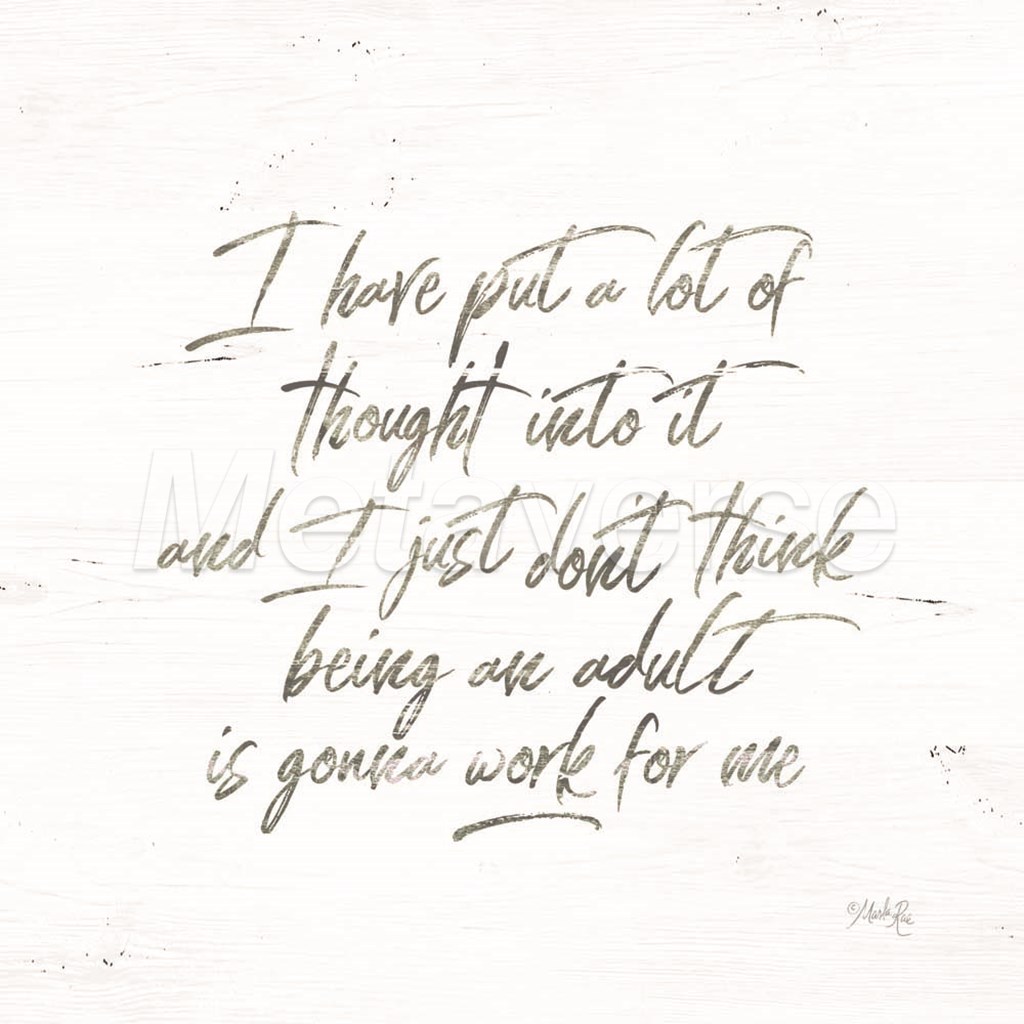 I have put a lot of
thought into it
Metaverse
and I just don't think
being an adult
is gonna work for me
© Marla Rae